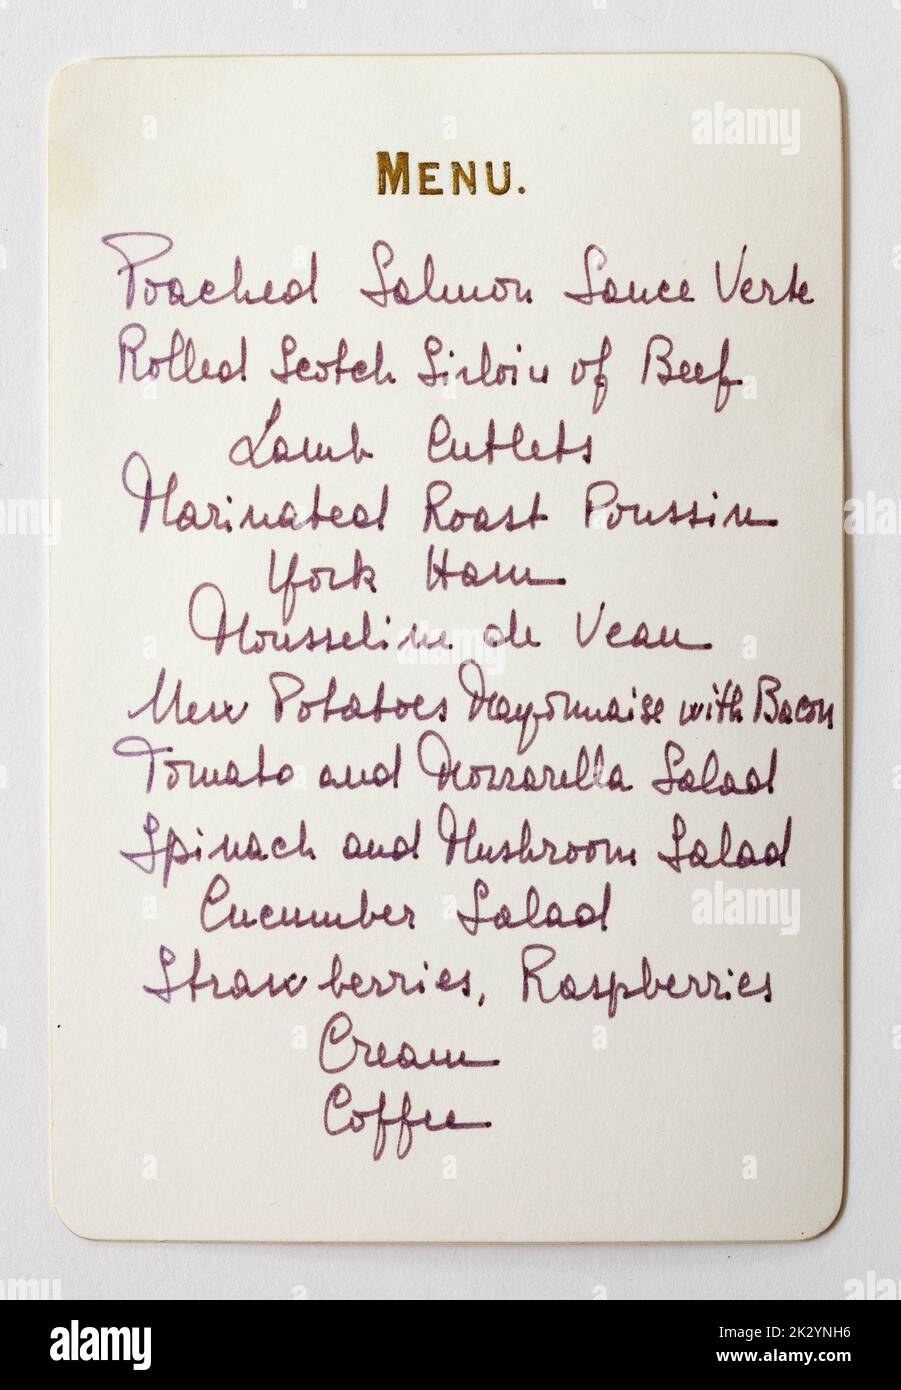 MENU.
Poached Salmon Sauce Verte
Rolled Scotch Sirloin of Beef
Lamb Cutlets
Marinated Roast Poussin
York Ham
Mousseline de Veau
New Potatoes Mayonnaise with Bacon
Tomato and Mozzarella Salad
Spinach and Mushroom Salad
Cucumber Salad
Strawberries, Raspberries
Cream
Coffee
alamy
Image ID: 2K2YNH6
www.alamy.com